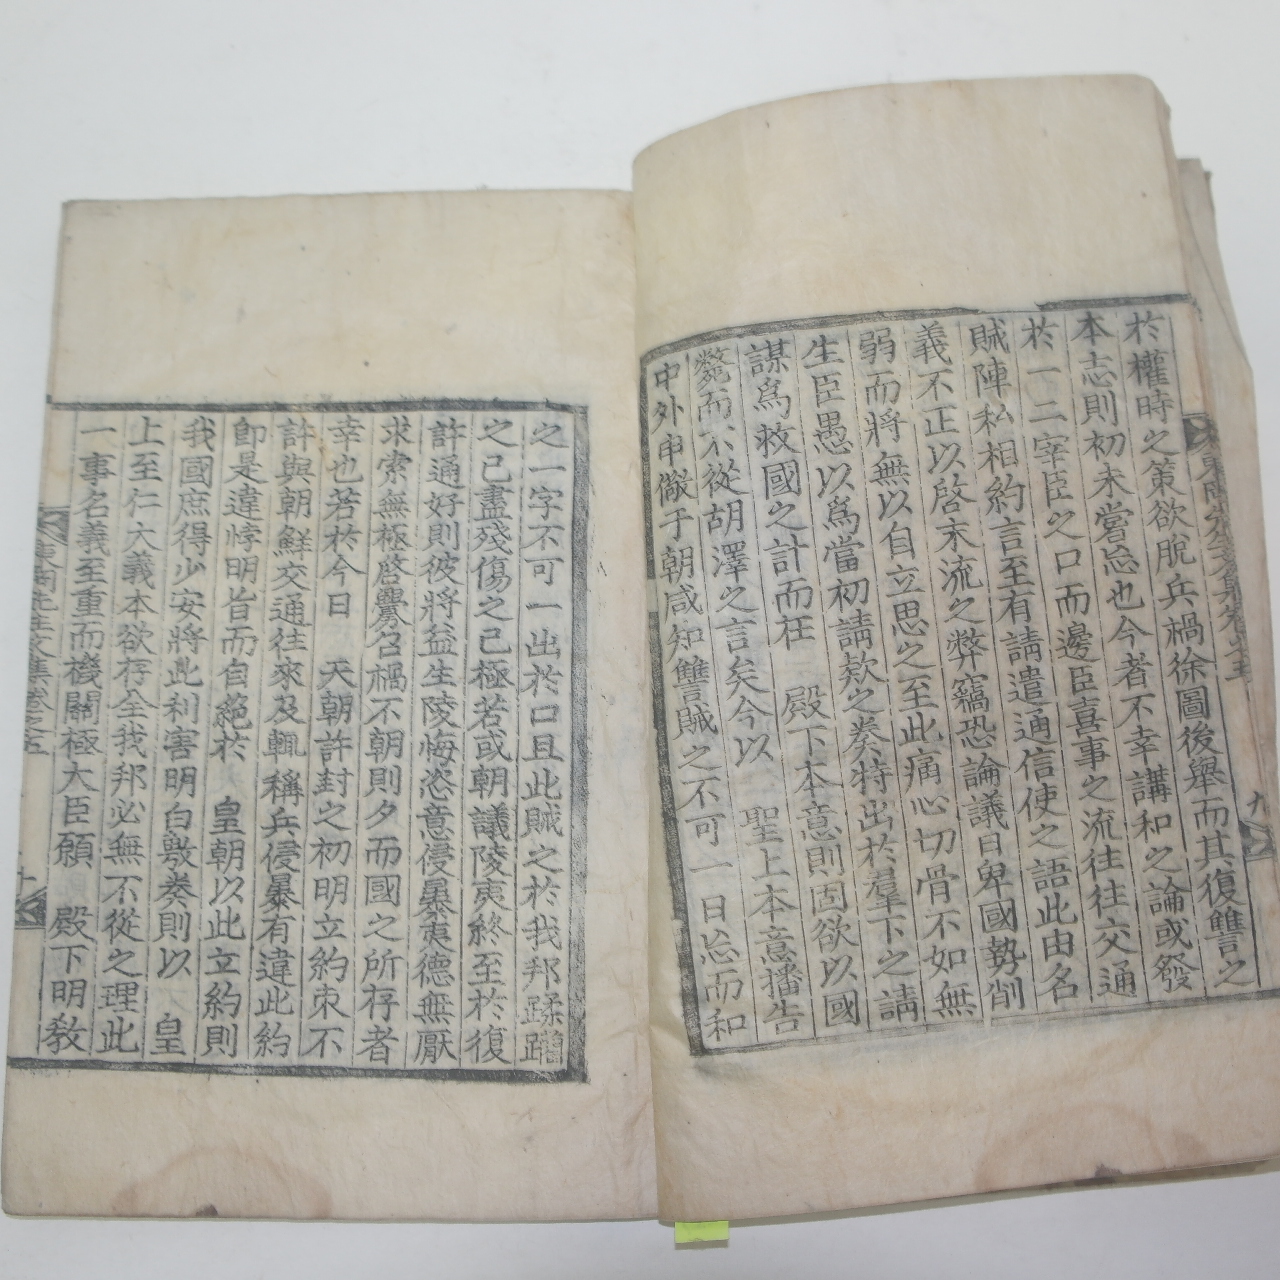 於權時之策欲脫兵禍徐圖後舉而其復讐之
本志則初未嘗忘也今者不幸講和之論或發
於一二宰臣之口而邊臣喜事之流往往交通
賊陣私相約言至有請遣通信使之語此由名
義不正以啓末流之弊竊恐論議日卑國勢削
弱而將無以自立思之至此痛心切骨不如無
生臣愚以爲當初請欵之奏特出於羣下之請
謀爲救國之計而在 殿下本意則固欲以國
斃而不從胡澤之言矣今以 聖上本意播告
中外申儆于朝咸知讐賊之不可一日忘而和
九
之一字不可一出於口且此賊之於我邦蹂躪
之已盡殘傷之已極若或朝議陵夷終至於復
許通好則彼將益生陵侮恣意侵暴夷德無厭
求索無極啓釁召禍不朝則夕而國之所存者
幸也若於今日 天朝許封之初明立約束不
許與朝鮮交通往來及輒稱兵侵暴有違此約
卽是違悖明旨而自絕於 皇朝以此立約則
我國庶得少安將此利害明白敷奏則以 皇
上至仁大義本欲存全我邦必無不從之理此
一事名義至重而機關極大臣願 殿下明敎
文集卷之五
十